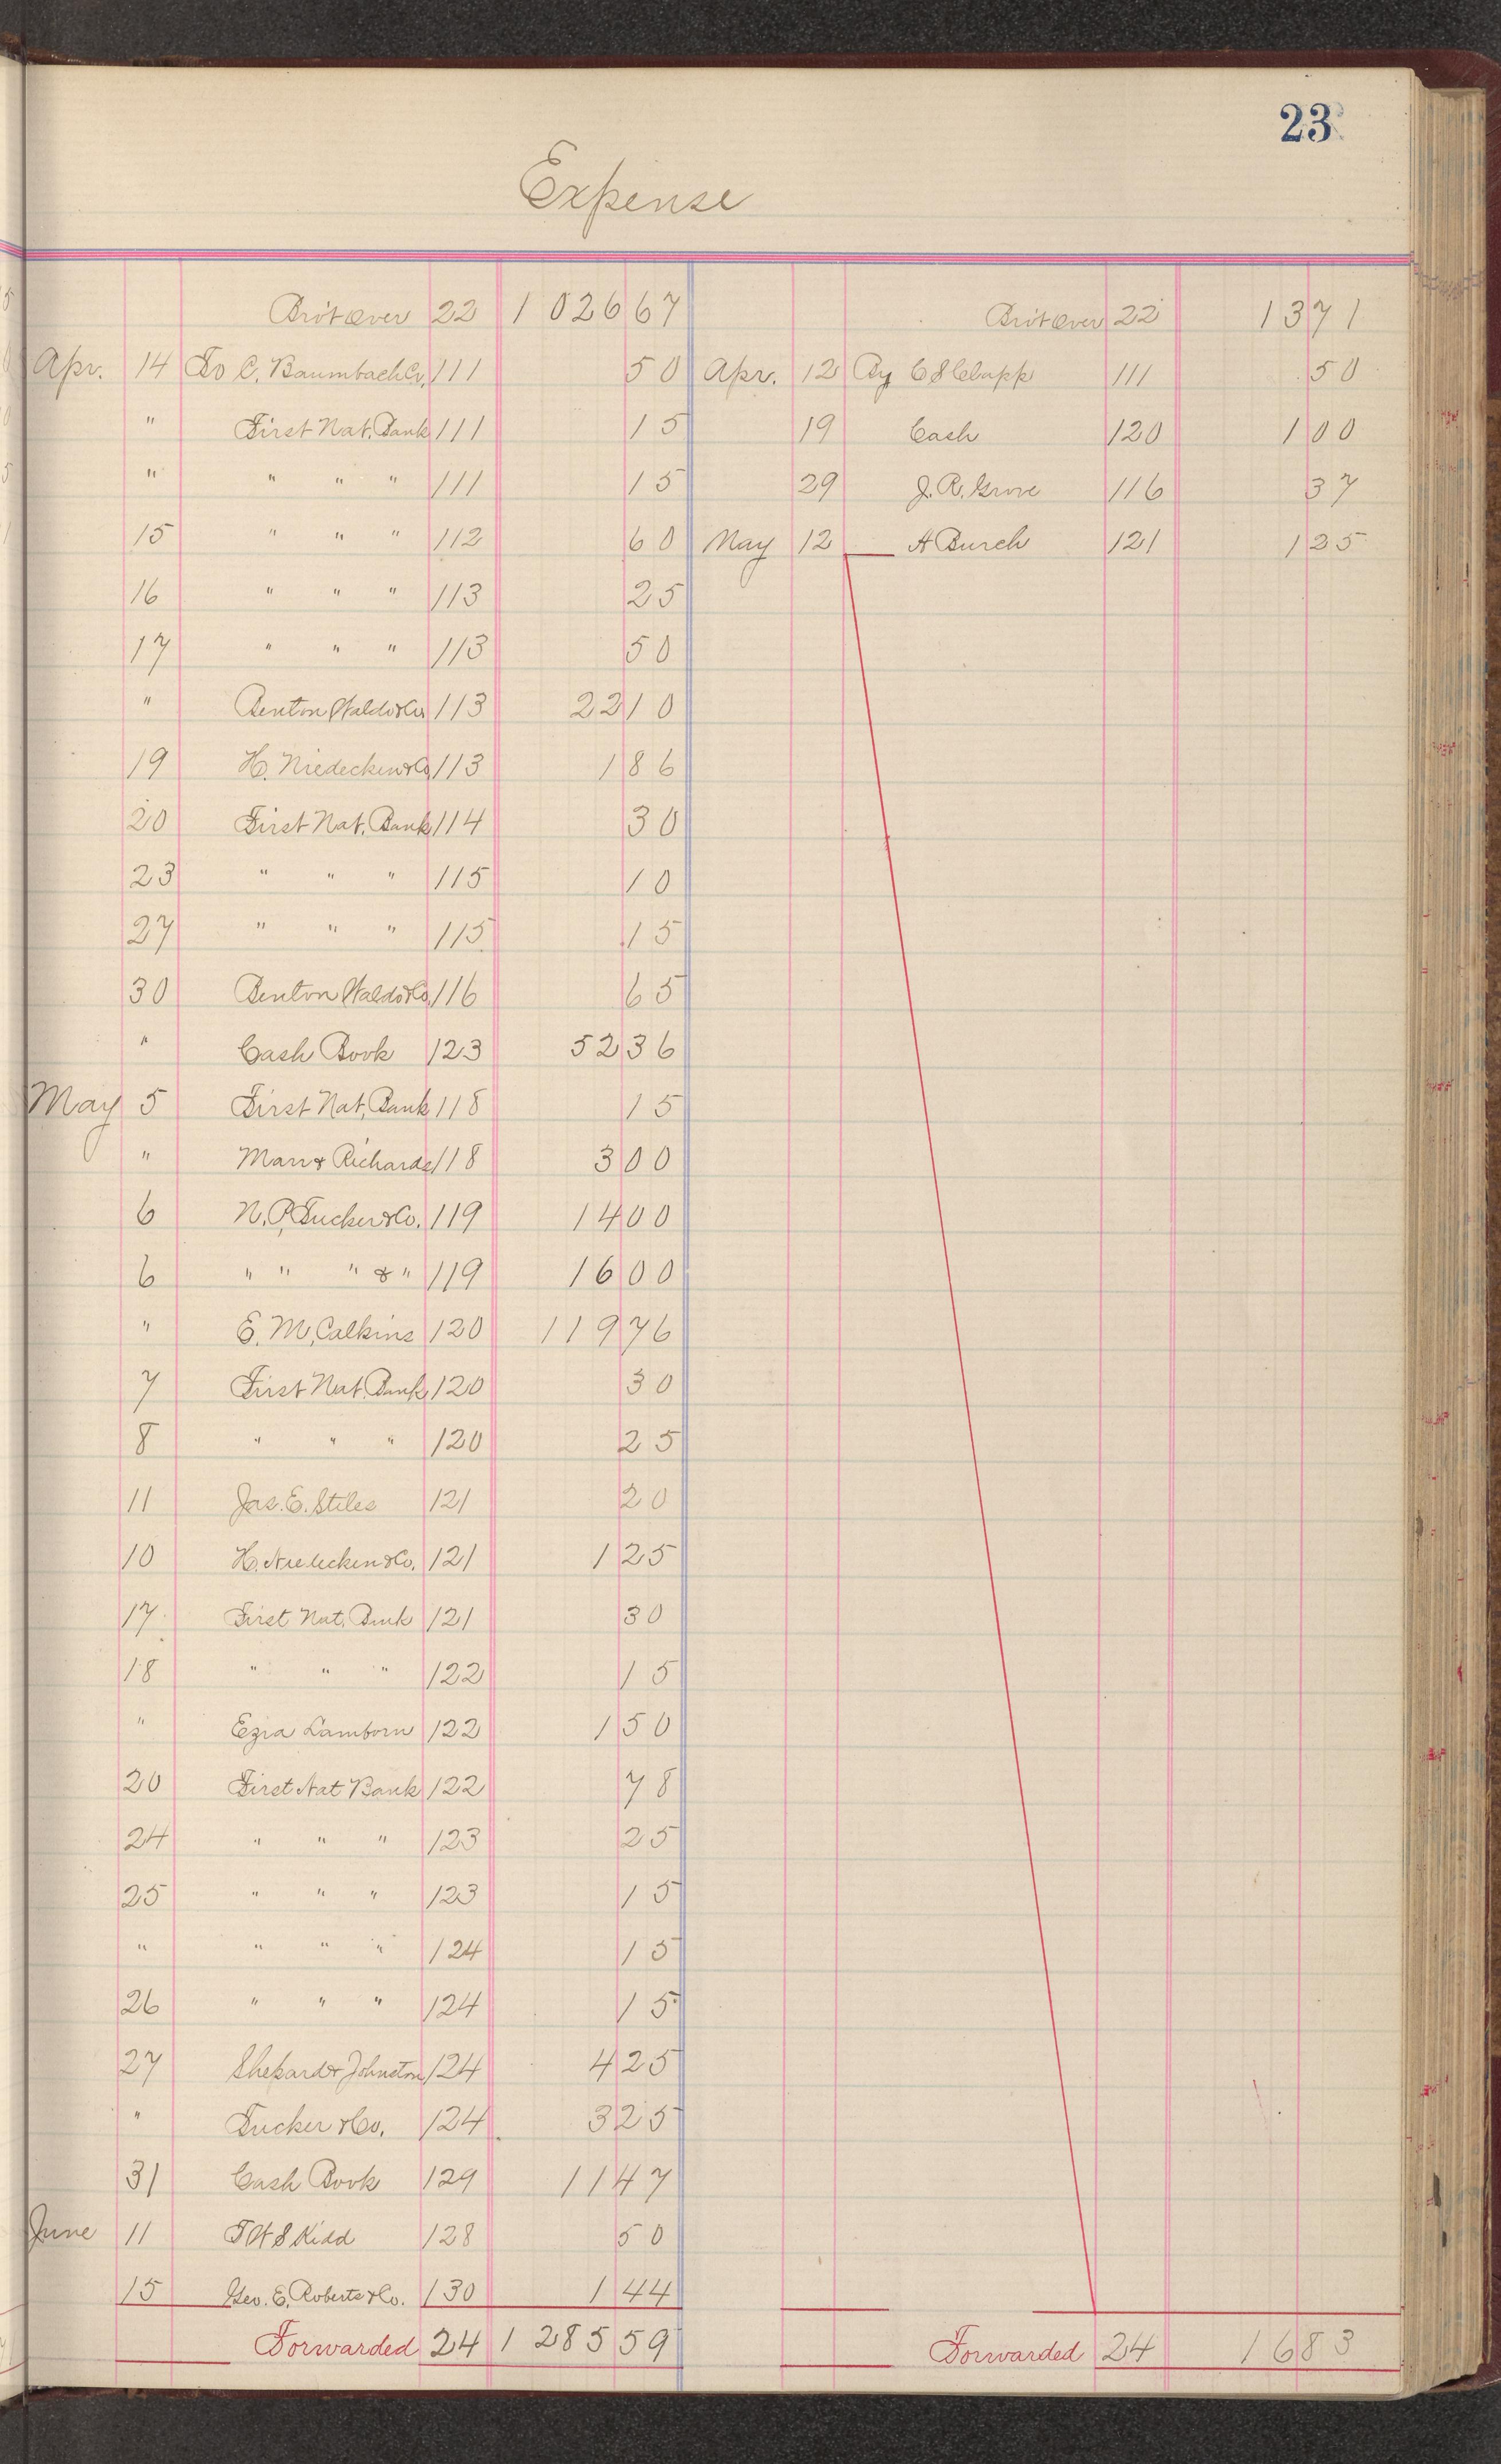 23
Expense
Brot over 22 1 026 67
Apr. 14 To C. Baumbach Co. 111 50
" First Nat. Bank 111 15
" " " " 111 15
15 " " " 112 60
16 " " " 113 25
17 " " " 113 50
" Benton Waldo & Co 113 22 10
19 H. Niedecken & Co 113 1 86
20 First Nat. Bank 114 30
23 " " " 115 10
27 " " " 115 15
30 Benton Waldo & Co. 116 65
" Cash Book 123 52 36
May 5 First Nat. Bank 118 15
" Marr & Richards 118 3 00
6 N. P. Tucker & Co. 119 14 00
6 " " " & " 119 16 00
" E. M. Calkins 120 119 76
7 First Nat. Bank 120 30
8 " " " 120 25
11 Jas. E. Stiles 121 20
10 H. Niedecken & Co. 121 1 25
17 First Nat. Bank 121 30
18 " " " 122 15
" Ezra Lamborn 122 1 50
20 First Nat Bank 122 78
24 " " " 123 25
25 " " " 123 15
" " " " 124 15
26 " " " 124 15
27 Shepard & Johnston 124 4 25
" Tucker & Co. 124 3 25
31 Cash Book 129 11 47
June 11 T H S Kidd 128 50
15 Geo. E. Roberts & Co. 130 1 44
Forwarded 24 1 285 59
Brot over 22 13 71
Apr. 12 By C S Clapp 111 50
19 Cash 120 1 00
29 J. R. Grove 116 37
May 12 A Burch 121 1 25
Forwarded 24 16 83